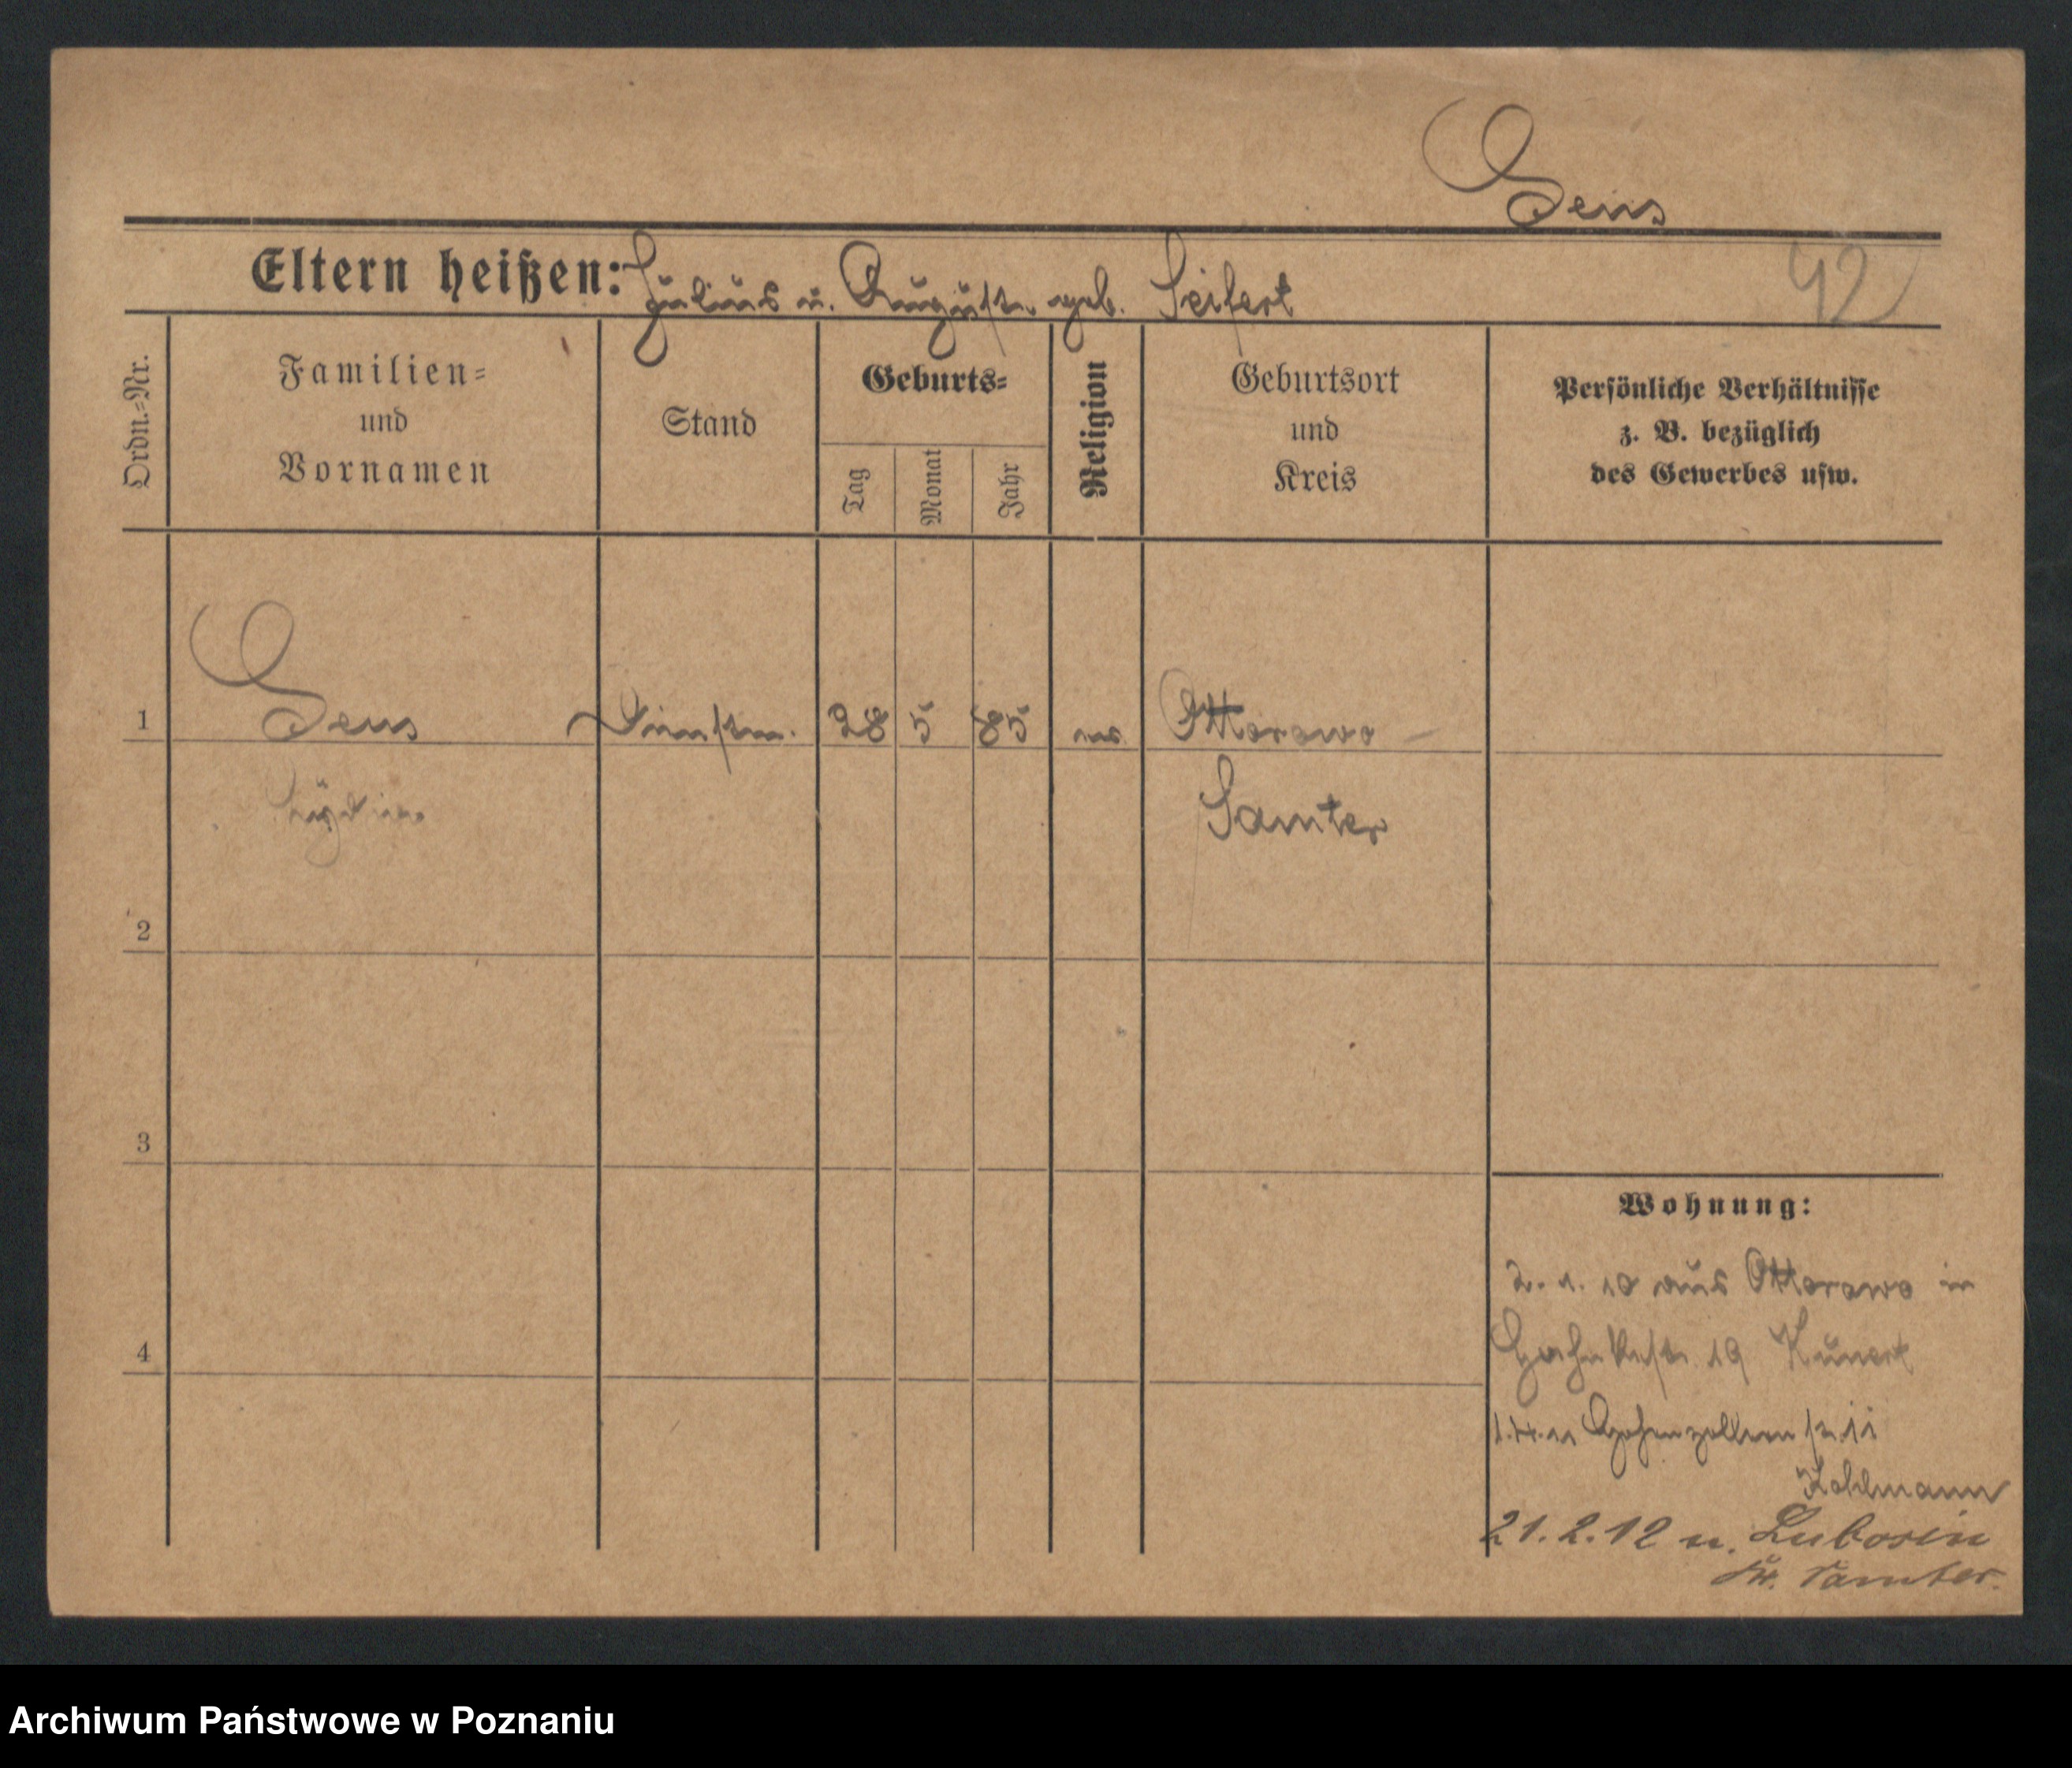 Sens
Eltern heißen: Julius u. Auguste geb. Seifert
42
Ordn.=Nr.
Familien=
und
Vornamen
Stand
Geburts=
Tag
Monat
Jahr
Religion
Geburtsort
und
Kreis
Persönliche Verhältnisse
z. B. bezüglich
des Gewerbes usw.
1
Sens
28 5 85
Ottorowo
Samter
2
3
4
Wohnung:
2. 1. 10 aus Ottorowo in
19 Kunert
Hohenzollern str. 11
Kohlmann
21. 2. 12 n. Lubosin
Kr. Samter.
Archiwum Państwowe w Poznaniu